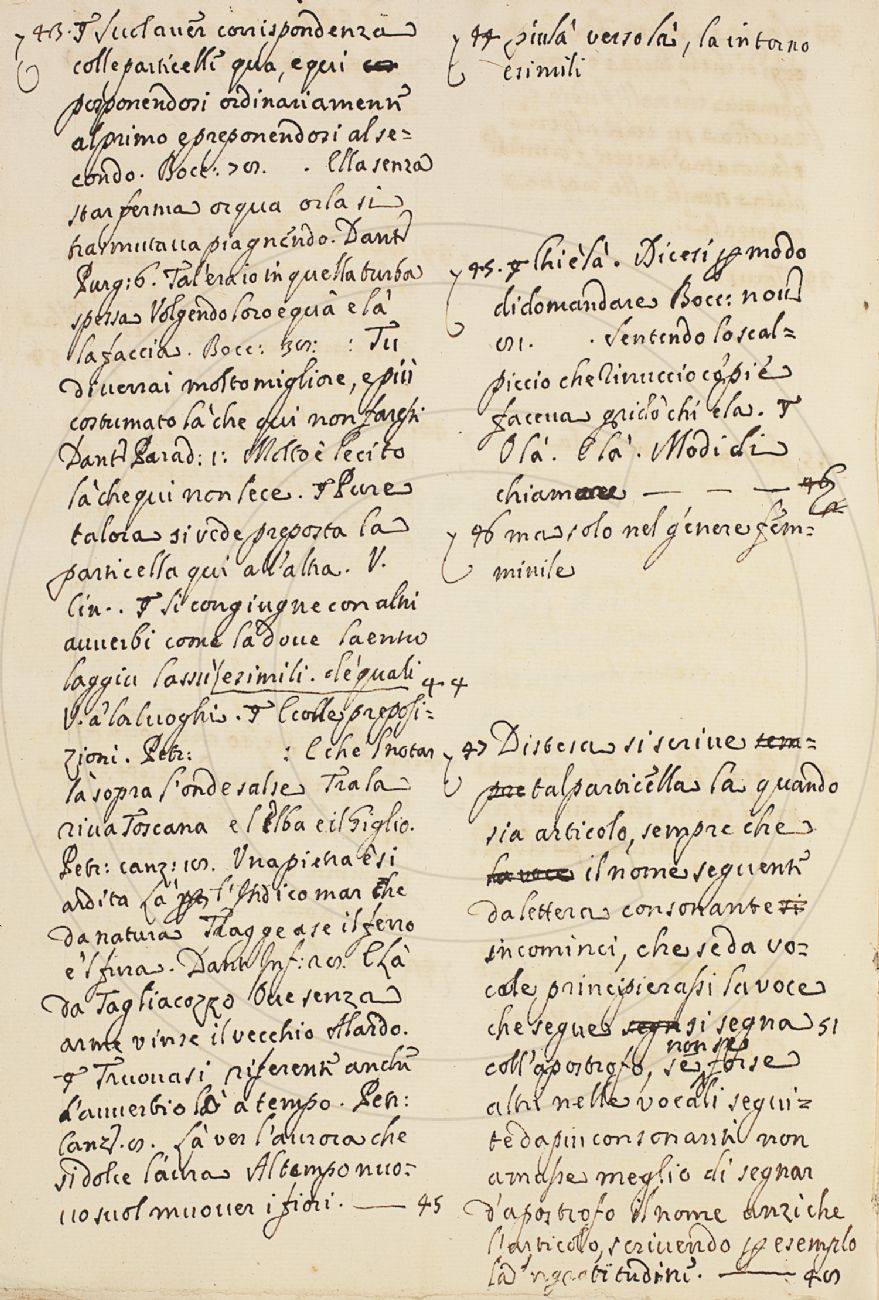 43. ¶ Suol auer corrispondenza
colle particelle qua, e qui
posponendosi ordinariamente
al primo e preponendosi al se=
condo. Bocc: 78. . Ella senza
star ferma or qua or la si
tramutaua piagnendo. Dante
Purg: 6. Tal'era io in quella turba
spessa Volgendo loro e quà e là
la faccia. Bocc: 38: : Tu
diuerrai molto migliore, e più
costumato là che qui non faresti
Dante Parad: 1: Molto è lecito
là che qui non lece. ¶ Pure
talora si vede preposta la
particella qui all'altra. V.
lin.. ¶ Si congiugne con altri
auuerbi come là doue là entro
laggiu lassù, e simili. de' quali 44
V. a' la luoghi. ¶ E colle preposi=
zioni. Petr: : E che l notar
là sopra l'onde salse Tra la
riua Toscana e l Elba e il Giglio.
Petr: canz: 18. Una pietra è si
ardita Là per l'Indico mar che
da natura Tragge a se il ferro
e 'l fura. Dante Inf: 28. E Là
da Tagliacozzo Oue senza
arme vinse il vecchio Alardo.
¶ Truouasi riferente anche
l'auuerbio là a tempo. Petr:
Canz. 8. Là ver l'aurora che
si dolce l'aura Al tempo nuo=
uo suol muouer i fiori. — 45
44 piu là verso là, la intorno
e simili
45. ¶ Chi è là. Dicesi per modo
di domandare Bocc: nou
81. . Sentendo lo scal=
piccio che Rinuccio co' piè
faceua gridò chi è la. ¶
O là. E là. Modi di
chiamare — — — 46
46 ma solo nel genere fem=
minile
47 Distesa si scriue sem=
pre tal particella la quando
sia articolo, sempre che
la voce il nome seguente
da lettera consonante si
incominci, che se da vo=
cale principierassi la voce
che segue segn si segna 51
coll'apostrofo, se, forse
non se
altri nelle vocali segui=
te da più consonanti non
amasse meglio di segnar
d'apostrofo il nome anzi che
l'articolo, scriuendo per esempio
la 'ngratitudine. — 48